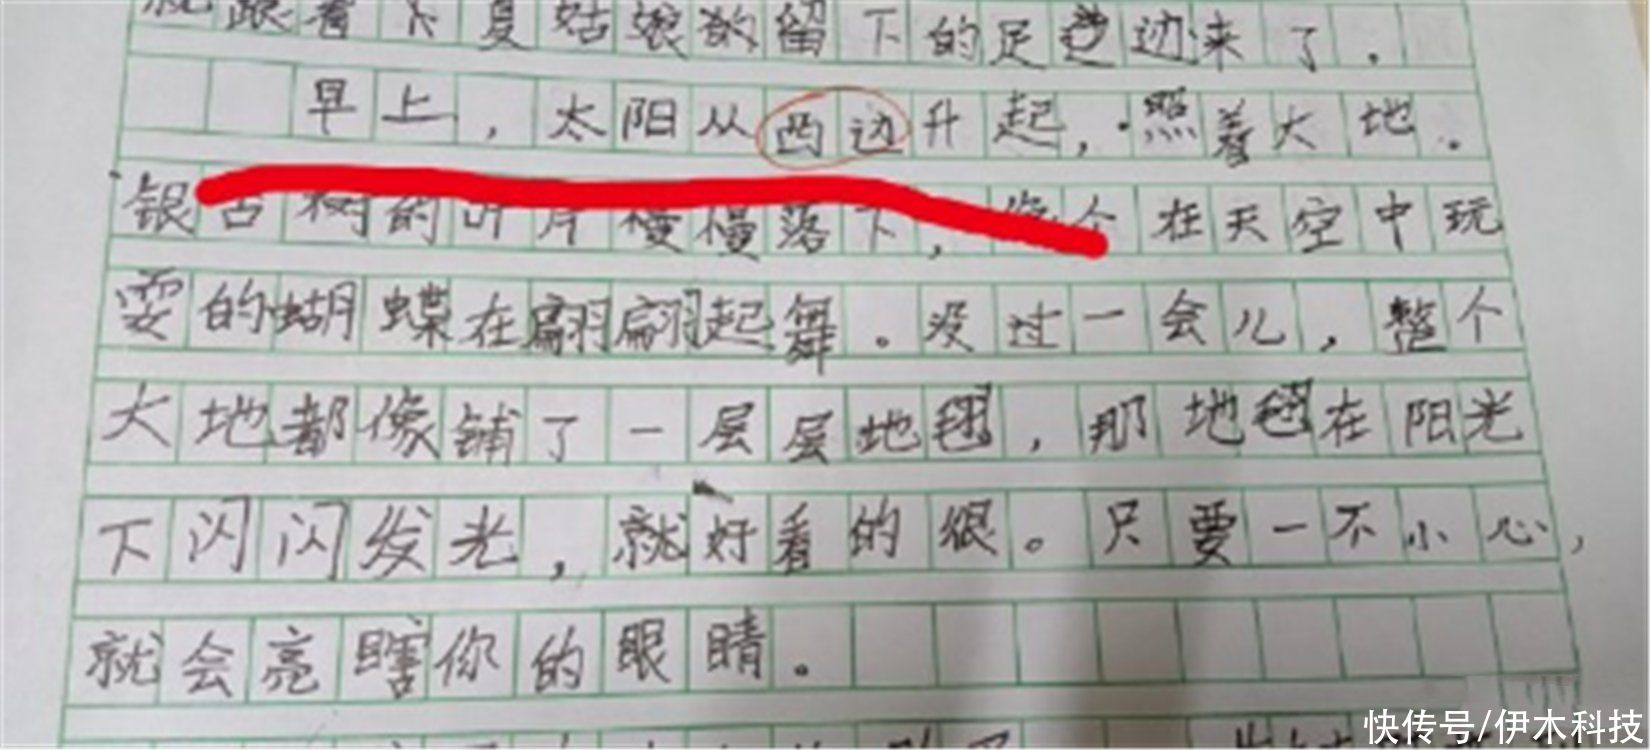 就跟着下夏姑娘欲留下的足迹边来了.
早上,太阳从西边升起,照着大地.
银杏树的叶片慢慢落下,像个在天空中玩
耍的蝴蝶在翩翩起舞。没过一会儿,整个
大地都像铺了一层层地毯,那地毯在阳光
下闪闪发光,就好看的很。只要一不小心,
就会亮瞎你的眼睛。
快传号/伊木科技